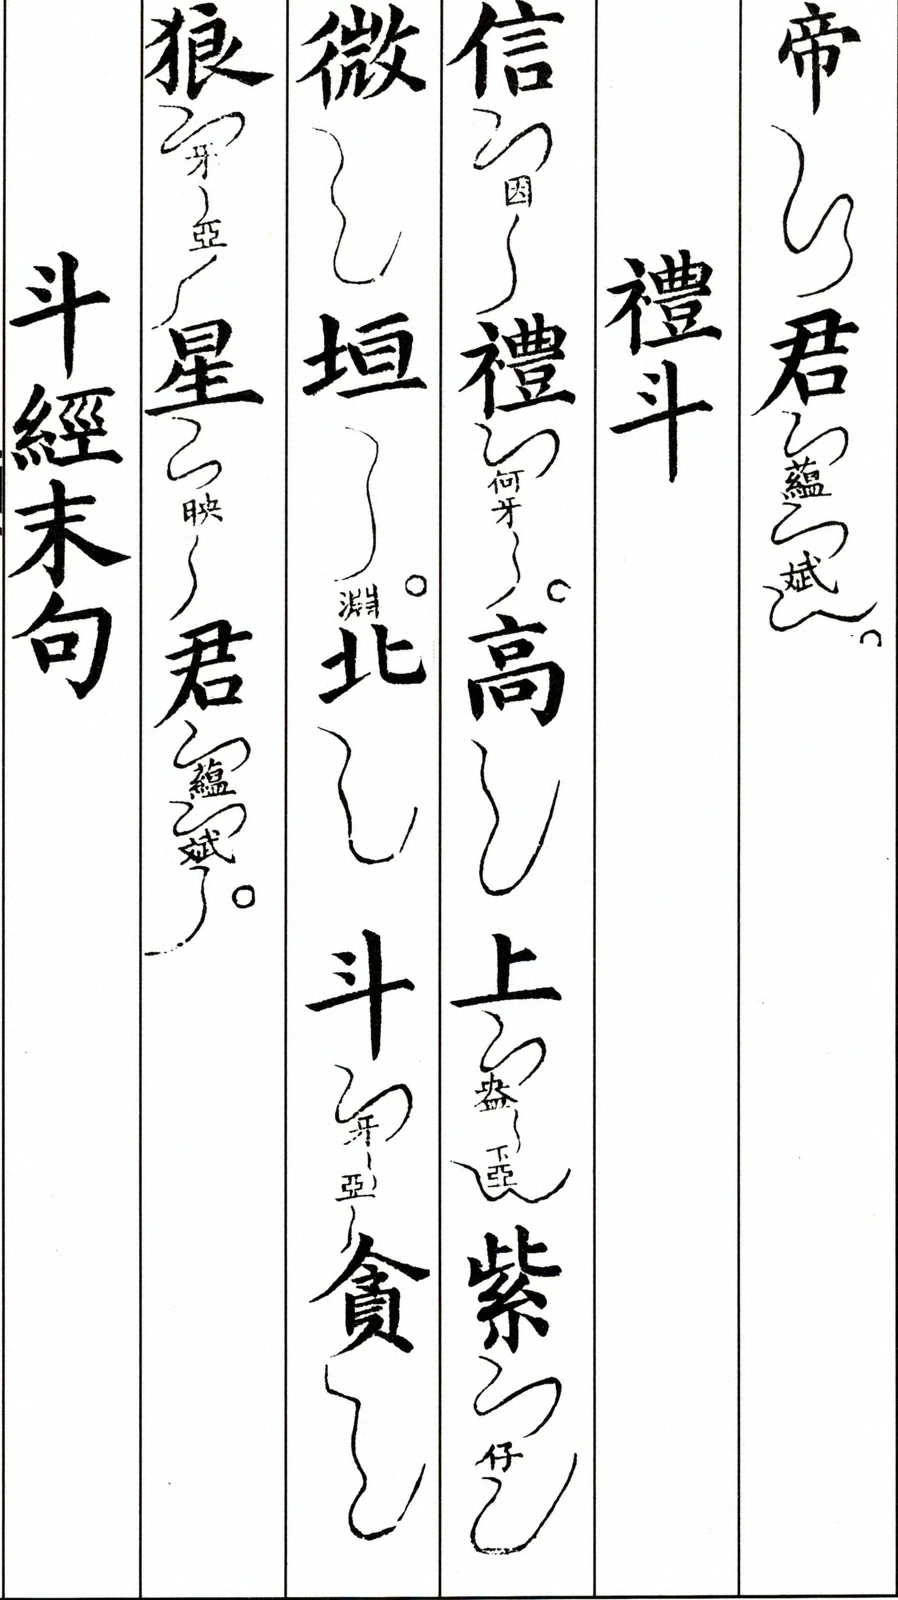 帝君蘊斌
禮斗
信因禮何牙高上盎下亞紫仔
微垣淵北斗牙亞貪
狼牙亞星映君蘊斌
斗經末句